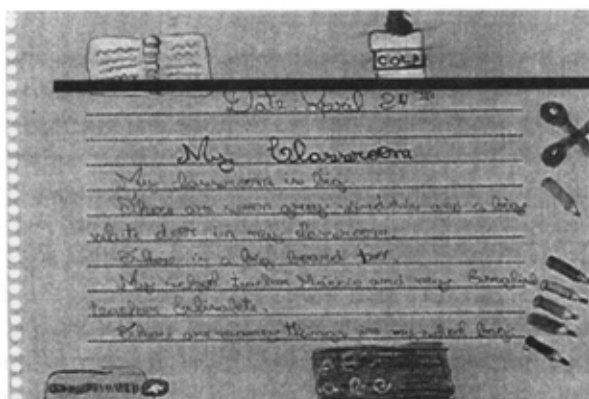 COLA
Date April 24th
My Classroom
My classroom is big.
There are grey and a big
white door in my classroom.
There is a big board for
My school teacher Márcio and my English
teacher Elisabete.
There are many things in my school bag.
A B C
a b c